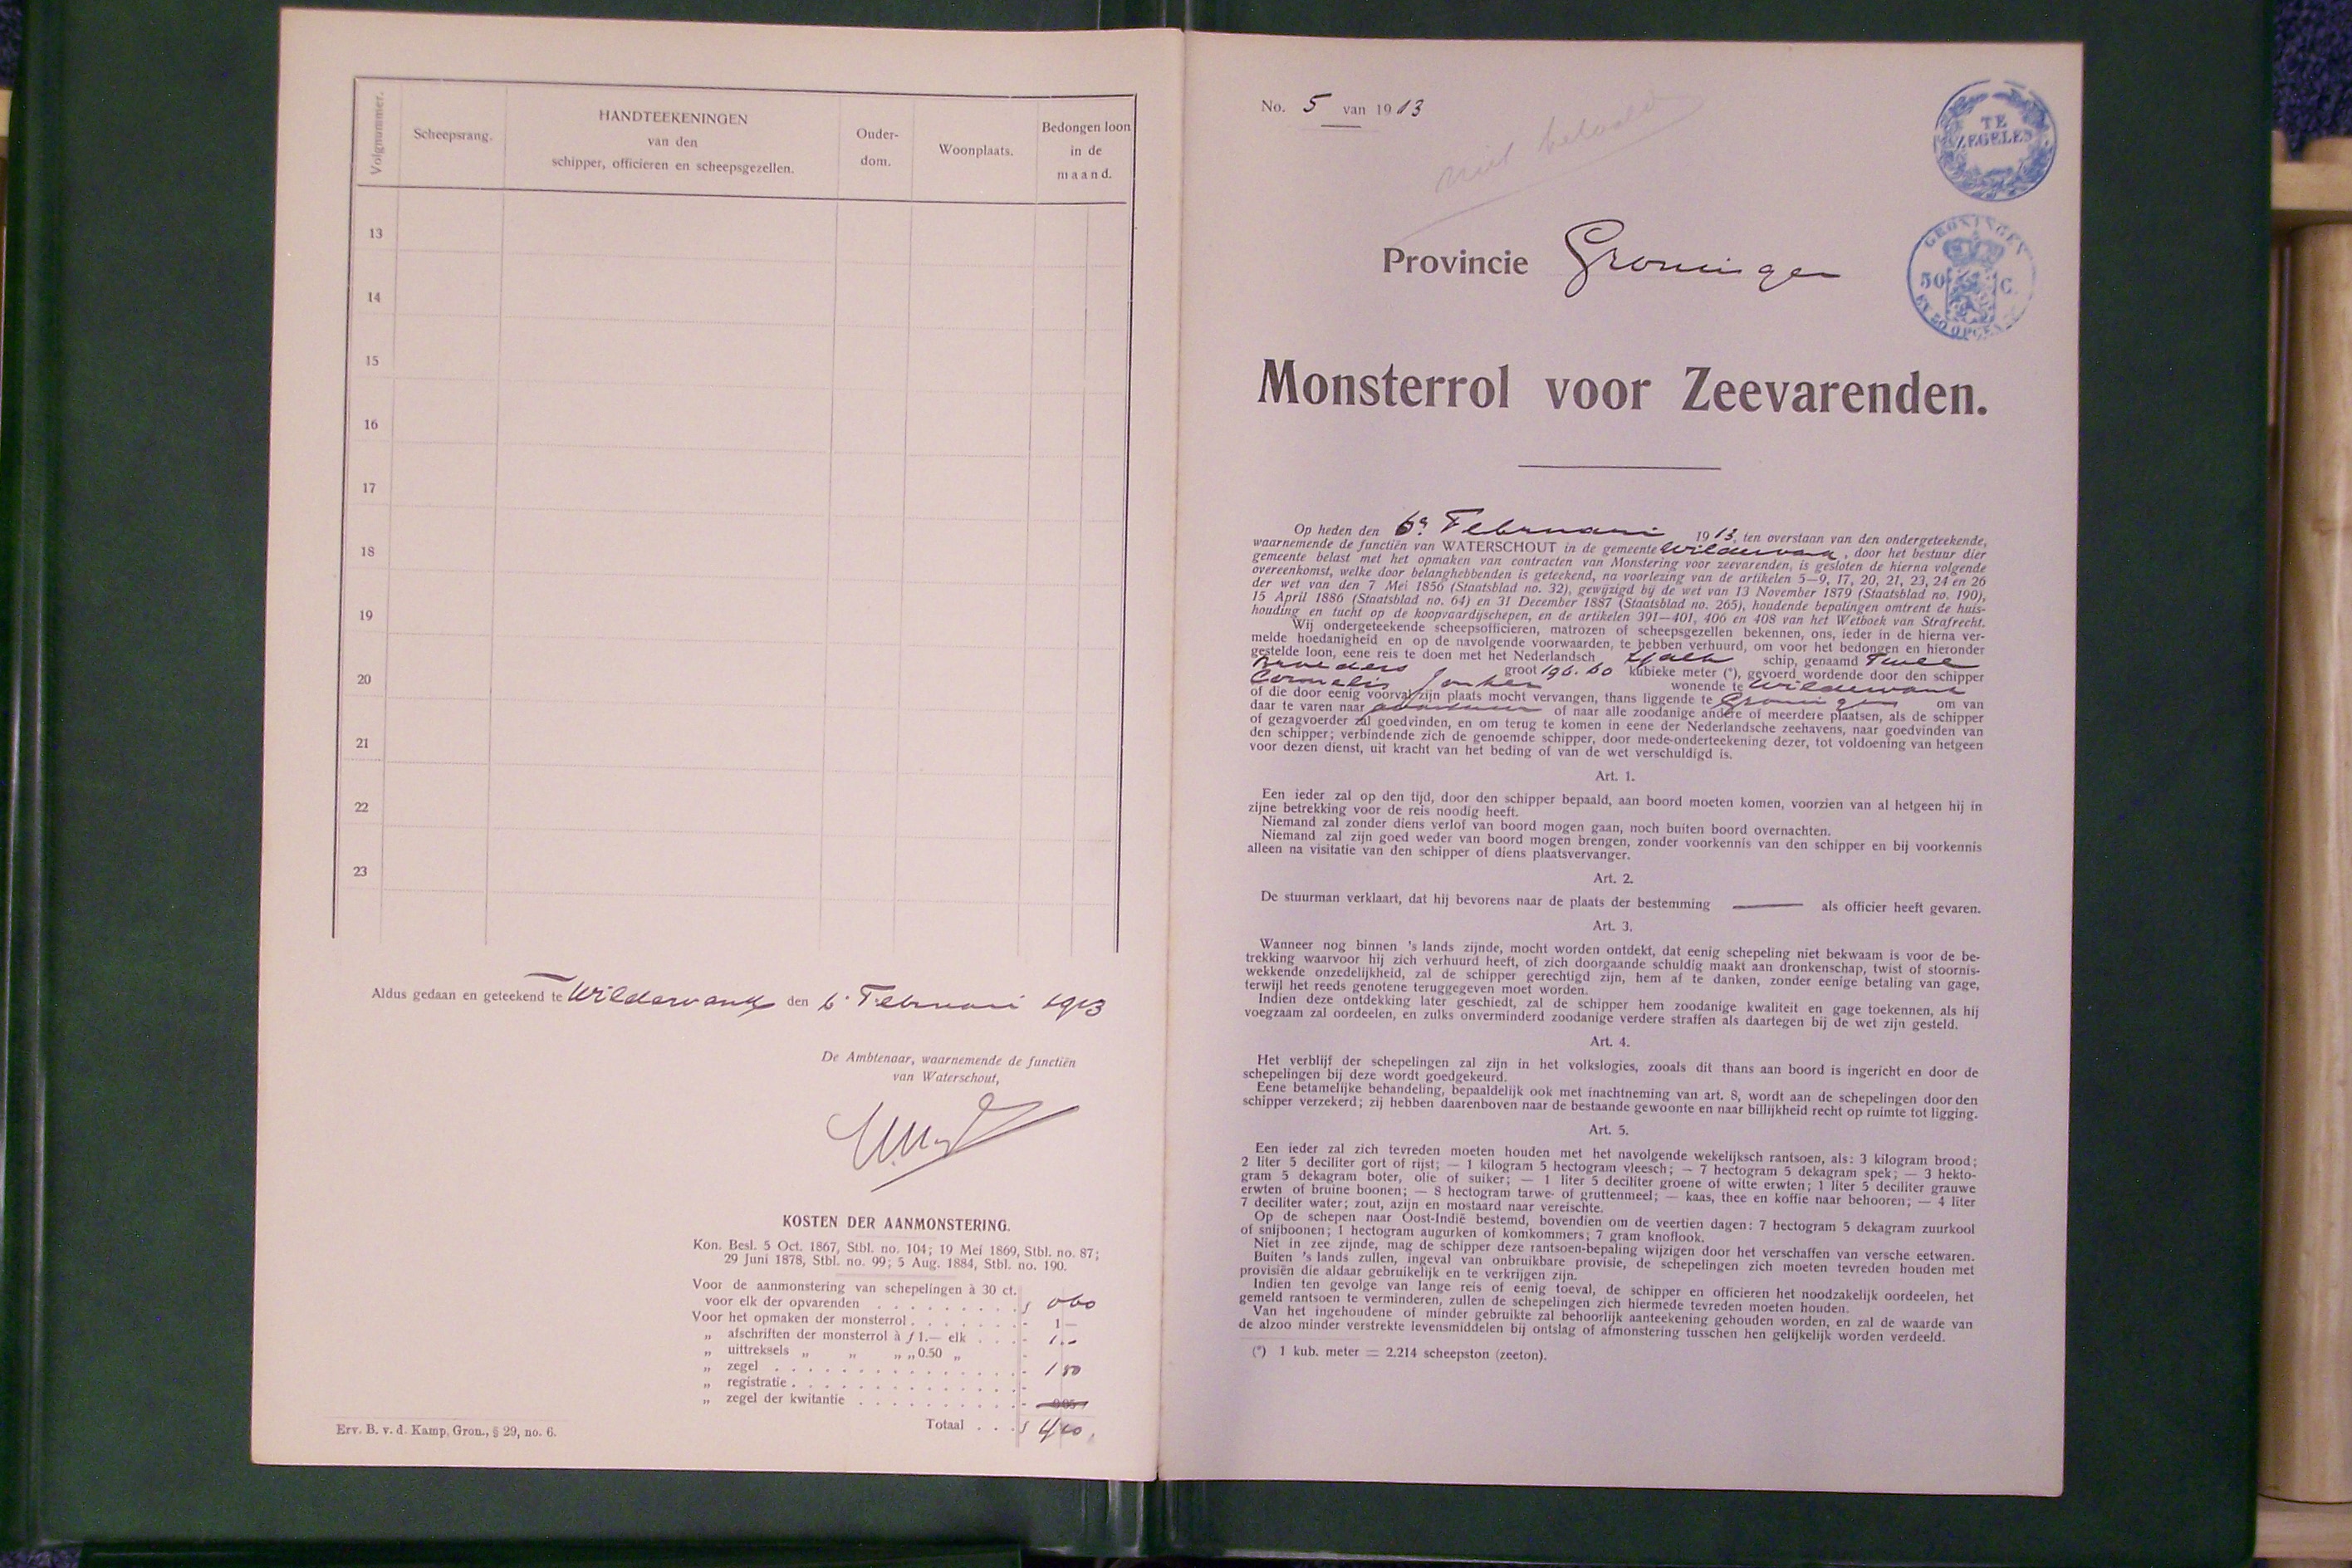 Volgnummer.
Scheepsrang.
HANDTEEKENINGEN
van den
schipper, officieren en scheepsgezellen.
Ouder-
dom.
Woonplaats.
Bedongen loon
in de
maand.
13
14
15
16
17
18
19
20
21
22
23
Aldus gedaan en geteekend te Wildervank den 6 Februari 1913
De Ambtenaar, waarnemende de functiën
van Waterschout,
KOSTEN DER AANMONSTERING.
Kon. Besl. 5 Oct. 1867, Stbl. no. 104; 19 Mei 1869, Stbl. no. 87;
29 Juni 1878, Stbl. no. 99; 5 Aug. 1884, Stbl. no. 190.
Voor de aanmonstering van schepelingen à 30 ct.
voor elk der opvarenden . . . . . . . . . f 0 60
Voor het opmaken der monsterrol . . . . . . . - 1 —
„ afschriften der monsterrol à f 1.— elk . . . - 1.-
„ uittreksels „ „ „ „ 0.50 „ -
„ zegel . . . . . . . . . . . . . . - 1 80
„ registratie . . . . . . . . . . . . . -
„ zegel der kwitantie . . . . . . . . . . -
Totaal . . . f 4 40
Erv. B. v. d. Kamp, Gron., § 29, no. 6.
No. 5 van 1913
niet betaald
TE
ZEGELEN
Provincie Groningen
GRONINGEN
50 C.
EN 50 OPCEN
Monsterrol voor Zeevarenden.
Op heden den 6e Februari 1913, ten overstaan van den ondergeteekende,
waarnemende de functiën van WATERSCHOUT in de gemeente Wildervank, door het bestuur dier
gemeente belast met het opmaken van contracten van Monstering voor zeevarenden, is gesloten de hierna volgende
overeenkomst, welke door belanghebbenden is geteekend, na voorlezing van de artikelen 5—9, 17, 20, 21, 23, 24 en 26
der wet van den 7 Mei 1856 (Staatsblad no. 32), gewijzigd bij de wet van 13 November 1879 (Staatsblad no. 190),
15 April 1886 (Staatsblad no. 64) en 31 December 1887 (Staatsblad no. 265), houdende bepalingen omtrent de huis-
houding en tucht op de koopvaardijschepen, en de artikelen 391—401, 406 en 408 van het Wetboek van Strafrecht.
Wij ondergeteekende scheepsofficieren, matrozen of scheepsgezellen bekennen, ons, ieder in de hierna ver-
melde hoedanigheid en op de navolgende voorwaarden, te hebben verhuurd, om voor het bedongen en hieronder
gestelde loon, eene reis te doen met het Nederlandsch tjalk schip, genaamd Twee
Broeders groot 196.60 kubieke meter (*), gevoerd wordende door den schipper
Cornelis Jonker wonende te Wildervank
of die door eenig voorval zijn plaats mocht vervangen, thans liggende te Groningen om van
daar te varen naar of naar alle zoodanige andere of meerdere plaatsen, als de schipper
of gezagvoerder zal goedvinden, en om terug te komen in eene der Nederlandsche zeehavens, naar goedvinden van
den schipper; verbindende zich de genoemde schipper, door mede-onderteekening dezer, tot voldoening van hetgeen
voor dezen dienst, uit kracht van het beding of van de wet verschuldigd is.
Art. 1.
Een ieder zal op den tijd, door den schipper bepaald, aan boord moeten komen, voorzien van al hetgeen hij in
zijne betrekking voor de reis noodig heeft.
Niemand zal zonder diens verlof van boord mogen gaan, noch buiten boord overnachten.
Niemand zal zijn goed weder van boord mogen brengen, zonder voorkennis van den schipper en bij voorkennis
alleen na visitatie van den schipper of diens plaatsvervanger.
Art. 2.
De stuurman verklaart, dat hij bevorens naar de plaats der bestemming —— als officier heeft gevaren.
Art. 3.
Wanneer nog binnen 's lands zijnde, mocht worden ontdekt, dat eenig schepeling niet bekwaam is voor de be-
trekking waarvoor hij zich verhuurd heeft, of zich doorgaande schuldig maakt aan dronkenschap, twist of stoornis-
wekkende onzedelijkheid, zal de schipper gerechtigd zijn, hem af te danken, zonder eenige betaling van gage,
terwijl het reeds genotene teruggegeven moet worden.
Indien deze ontdekking later geschiedt, zal de schipper hem zoodanige kwaliteit en gage toekennen, als hij
voegzaam zal oordeelen, en zulks onverminderd zoodanige verdere straffen als daartegen bij de wet zijn gesteld.
Art. 4.
Het verblijf der schepelingen zal zijn in het volkslogies, zooals dit thans aan boord is ingericht en door de
schepelingen bij deze wordt goedgekeurd.
Eene betamelijke behandeling, bepaaldelijk ook met inachtneming van art. 8, wordt aan de schepelingen door den
schipper verzekerd; zij hebben daarenboven naar de bestaande gewoonte en naar billijkheid recht op ruimte tot ligging.
Art. 5.
Een ieder zal zich tevreden moeten houden met het navolgende wekelijksch rantsoen, als: 3 kilogram brood;
2 liter 5 deciliter gort of rijst; — 1 kilogram 5 hectogram vleesch; — 7 hectogram 5 dekagram spek; — 3 hekto-
gram 5 dekagram boter, olie of suiker; — 1 liter 5 deciliter groene of witte erwten; 1 liter 5 deciliter grauwe
erwten of bruine boonen; — 8 hectogram tarwe- of gruttenmeel; — kaas, thee en koffie naar behooren; — 4 liter
7 deciliter water; zout, azijn en mostaard naar vereischte.
Op de schepen naar Oost-Indië bestemd, bovendien om de veertien dagen: 7 hectogram 5 dekagram zuurkool
of snijboonen; 1 hectogram augurken of komkommers; 7 gram knoflook.
Niet in zee zijnde, mag de schipper deze rantsoen-bepaling wijzigen door het verschaffen van versche eetwaren.
Buiten 's lands zullen, ingeval van onbruikbare provisie, de schepelingen zich moeten tevreden houden met
provisiën die aldaar gebruikelijk en te verkrijgen zijn.
Indien ten gevolge van lange reis of eenig toeval, de schipper en officieren het noodzakelijk oordeelen, het
gemeld rantsoen te verminderen, zullen de schepelingen zich hiermede tevreden moeten houden.
Van het ingehoudene of minder gebruikte zal behoorlijk aanteekening gehouden worden, en zal de waarde van
de alzoo minder verstrekte levensmiddelen bij ontslag of afmonstering tusschen hen gelijkelijk worden verdeeld.
(*) 1 kub. meter = 2.214 scheepston (zeeton).